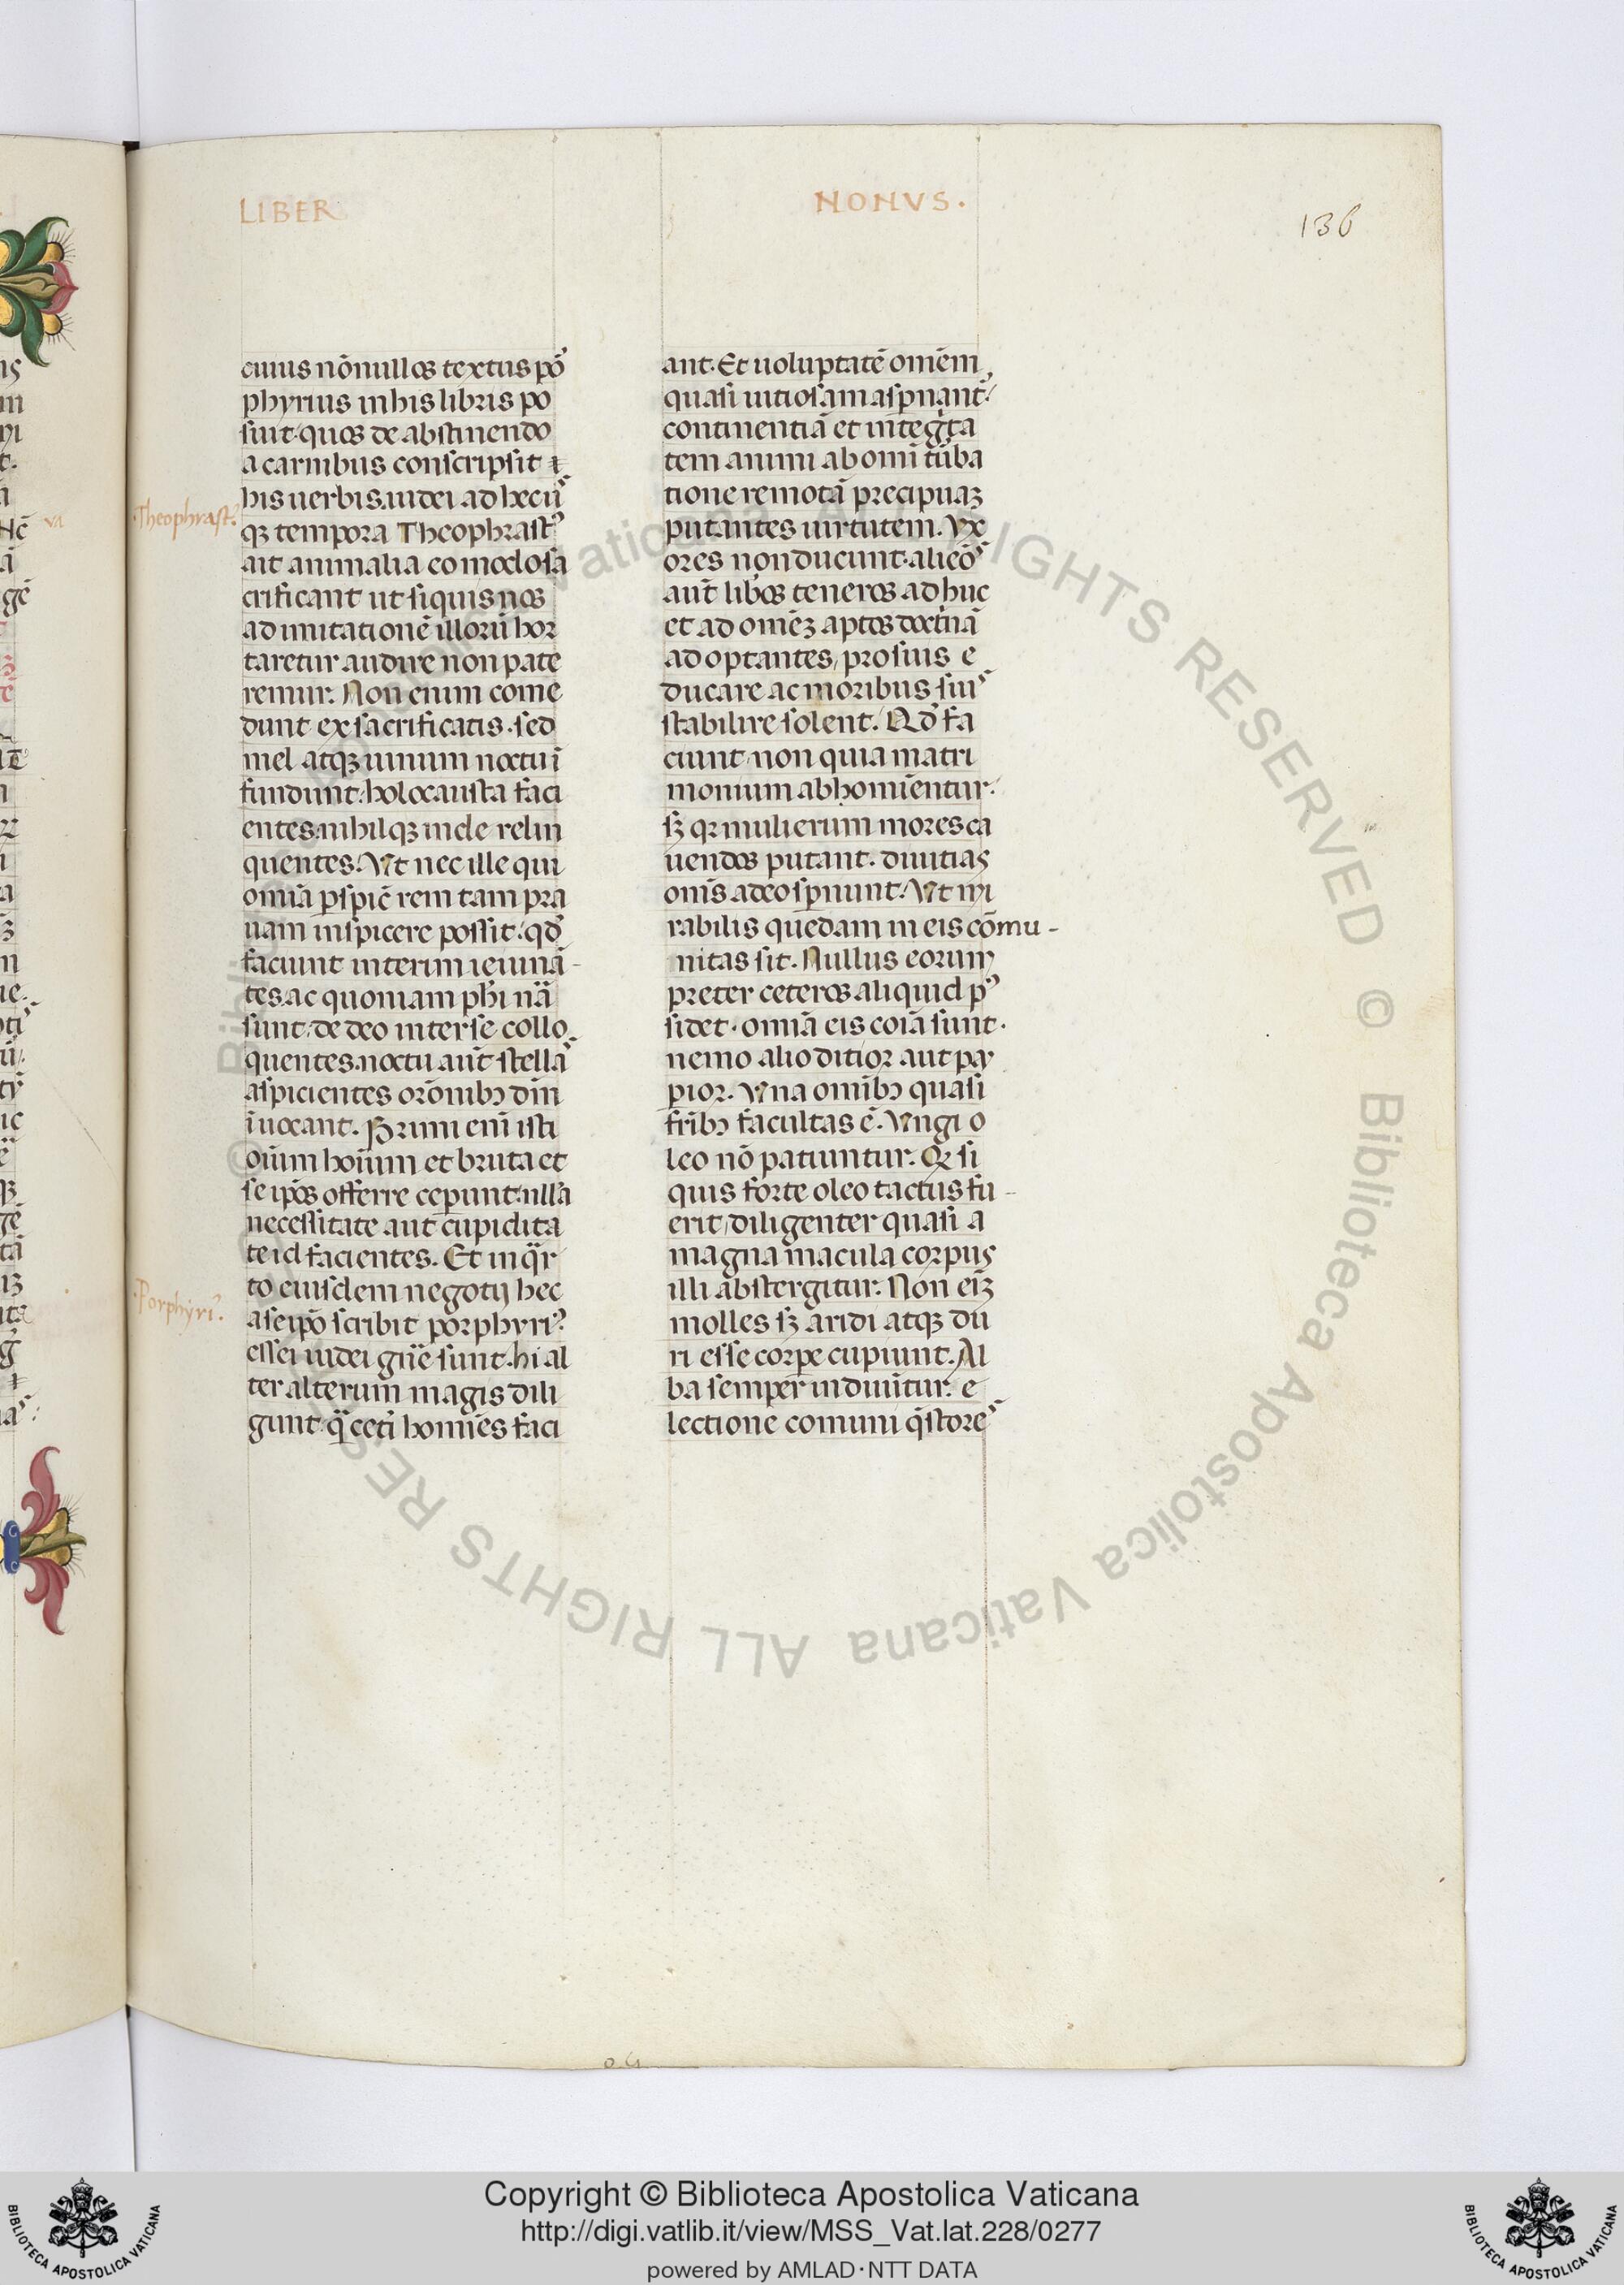 LIBER
NONVS.
136
cuius nōnullos textus por̄
phyrius in his libris po
suit. quos de abstinendo
a carnibus conscripsit ⁊
his uerbis. iudei ad hec us
Theophrastꝰ.
qꝫ tempora Theophrastꝰ
ait animalia eo modo sa
crificant ut siquis nos
ad imitationē illorū hor
taretur audire non pate
remur. Non enim come
dunt ex sacrificatis. sed
mel atqꝫ uinum noctu ī
fundunt: holocausta faci
entes: nihilqꝫ inde relin
quentes. Vt nec ille qui
omīa ꝑspic̄ rem tam pra
uam inspicere possit: qd̄
faciunt interim ieiunā-
tes. ac quoniam phī nā
sunt: de deo inter se collo
quentes. noctu aūt stellas
aspicientes orōnibꝫ dm̄
īuocant. Primi enī isti
oīum hoīum et bruta et
se ipōs offerre ceperunt: nulla
necessitate aut cupidita
te id facientes. Et in quar
to eiusdem negotij hec
Porphyriꝰ.
a se ipō scribit porphyriꝰ
essei iudei gn̄e sunt. hi al
ter alterum magis dili
gunt quā ceteri homīes faci
ant. Et uoluptatē omēm
quasi uitiosam aspernant᷑:
continentiā et integrita
tem animi ab omī turba
tione remotā precipuaꝫ
putantes uirtutem. Vx
ores non ducunt. alieos
aūt liberos teneros ad huc
et ad omēꝫ aptos doctrinā
adoptantes, pro suis e
ducare ac moribus suis
stabilire solent. Qd̄ fa
ciunt non quia matri
monium abhomīentur:
sꝫ qꝛ mulierum mores ca
uendos putant. diuitias
omīs adeo spernunt. Vt mi
rabilis quedam in eis cōmu-
nitas sit. Nullus eorum
preter ceteros aliquid pos
sidet. omīa eis coīa sunt.
nemo alio ditior aut pau
pior. Vna omībꝫ quasi
fribꝫ facultas ē. Vngi o
leo nō patiuntur. Qꝛ si
quis forte oleo tactus fu-
erit, diligenter quasi a
magna macula corpus
illi abstergitur. Non eīꝫ
molles sꝫ aridi atqꝫ du
ri esse corpe cupiunt. Al
ba semper induūtur. e
lectione comuni questores
Copyright © Biblioteca Apostolica Vaticana
http://digi.vatlib.it/view/MSS_Vat.lat.228/0277
powered by AMLAD·NTT DATA
BIBLIOTECA APOSTOLICA VATICANA
BIBLIOTECA APOSTOLICA VATICANA
© Biblioteca Apostolica Vaticana ALL RIGHTS RESERVED
© Biblioteca Apostolica Vaticana ALL RIGHTS RESERVED